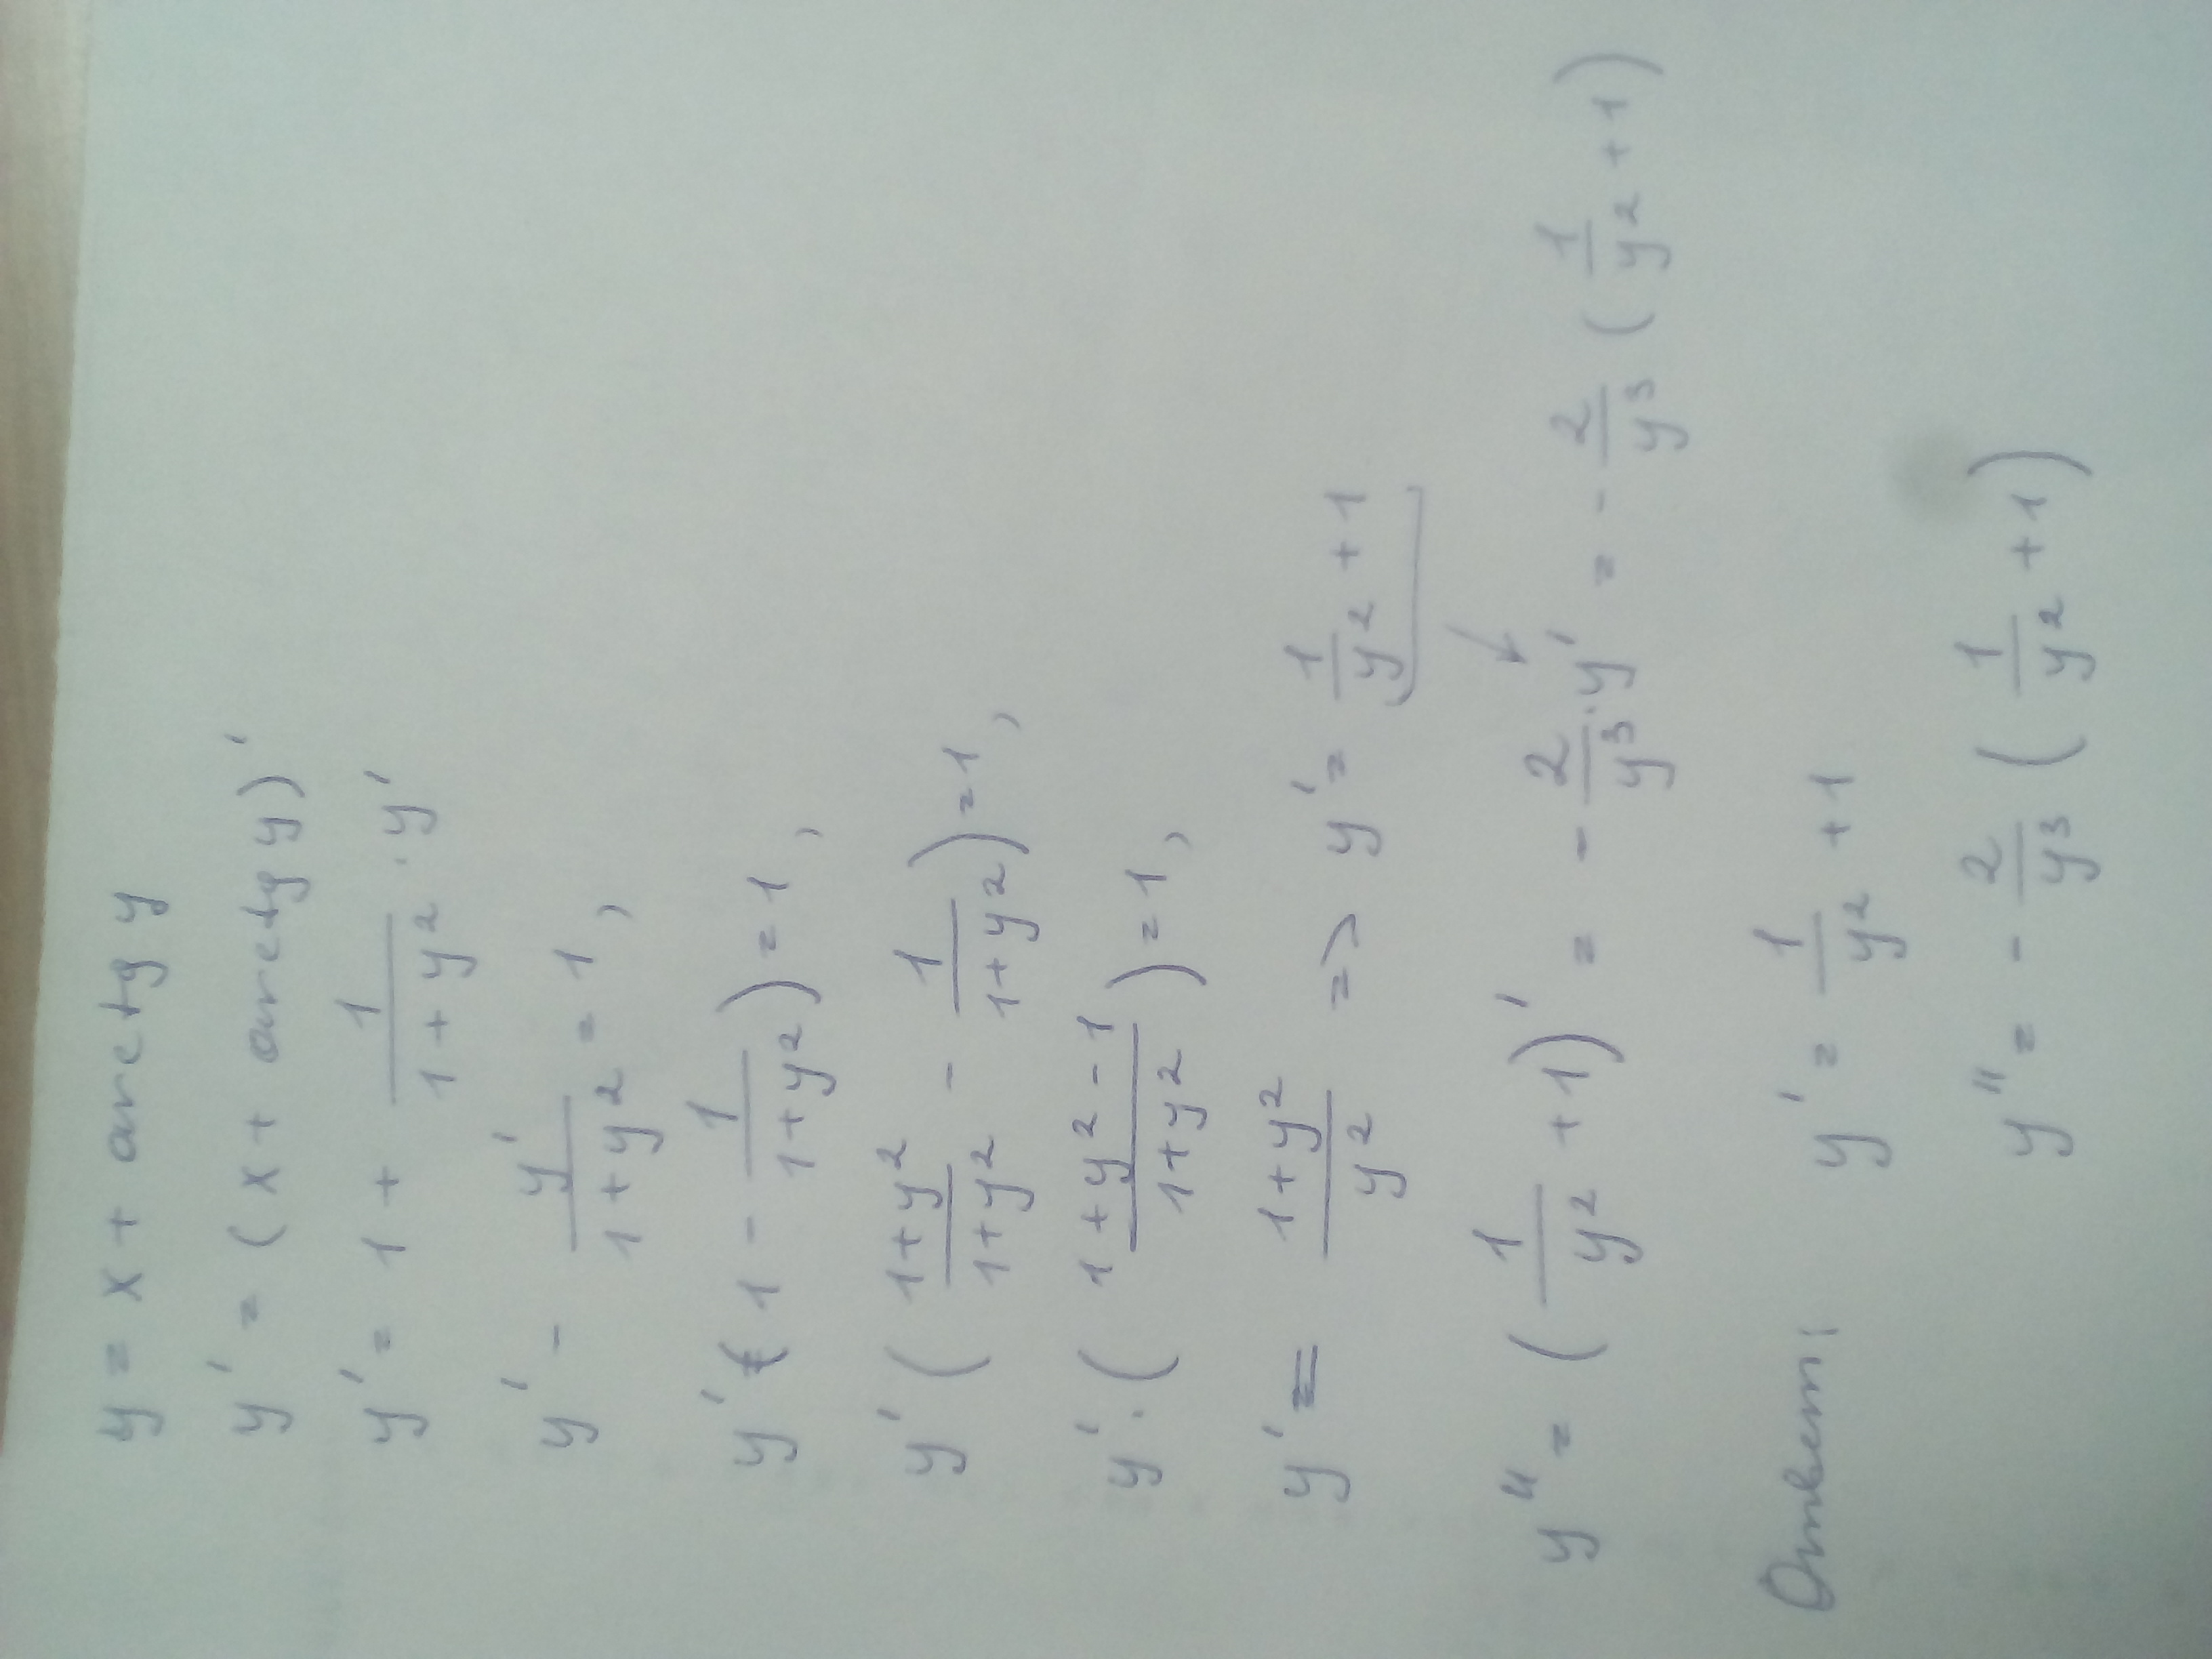 y = x + arctg y
y' = (x + arctg y)'
y' = 1 + \frac{1}{1+y^2} \cdot y'
y' - \frac{y'}{1+y^2} = 1,
y' (1 - \frac{1}{1+y^2}) = 1,
y' (\frac{1+y^2}{1+y^2} - \frac{1}{1+y^2}) = 1,
y' \cdot (\frac{1+y^2-1}{1+y^2}) = 1,
y' = \frac{1+y^2}{y^2} => y' = \frac{1}{y^2} + 1
y'' = (\frac{1}{y^2} + 1)' = -\frac{2}{y^3} \cdot y' = -\frac{2}{y^3} (\frac{1}{y^2} + 1)
Ответ: y' = \frac{1}{y^2} + 1
y'' = -\frac{2}{y^3} (\frac{1}{y^2} + 1)